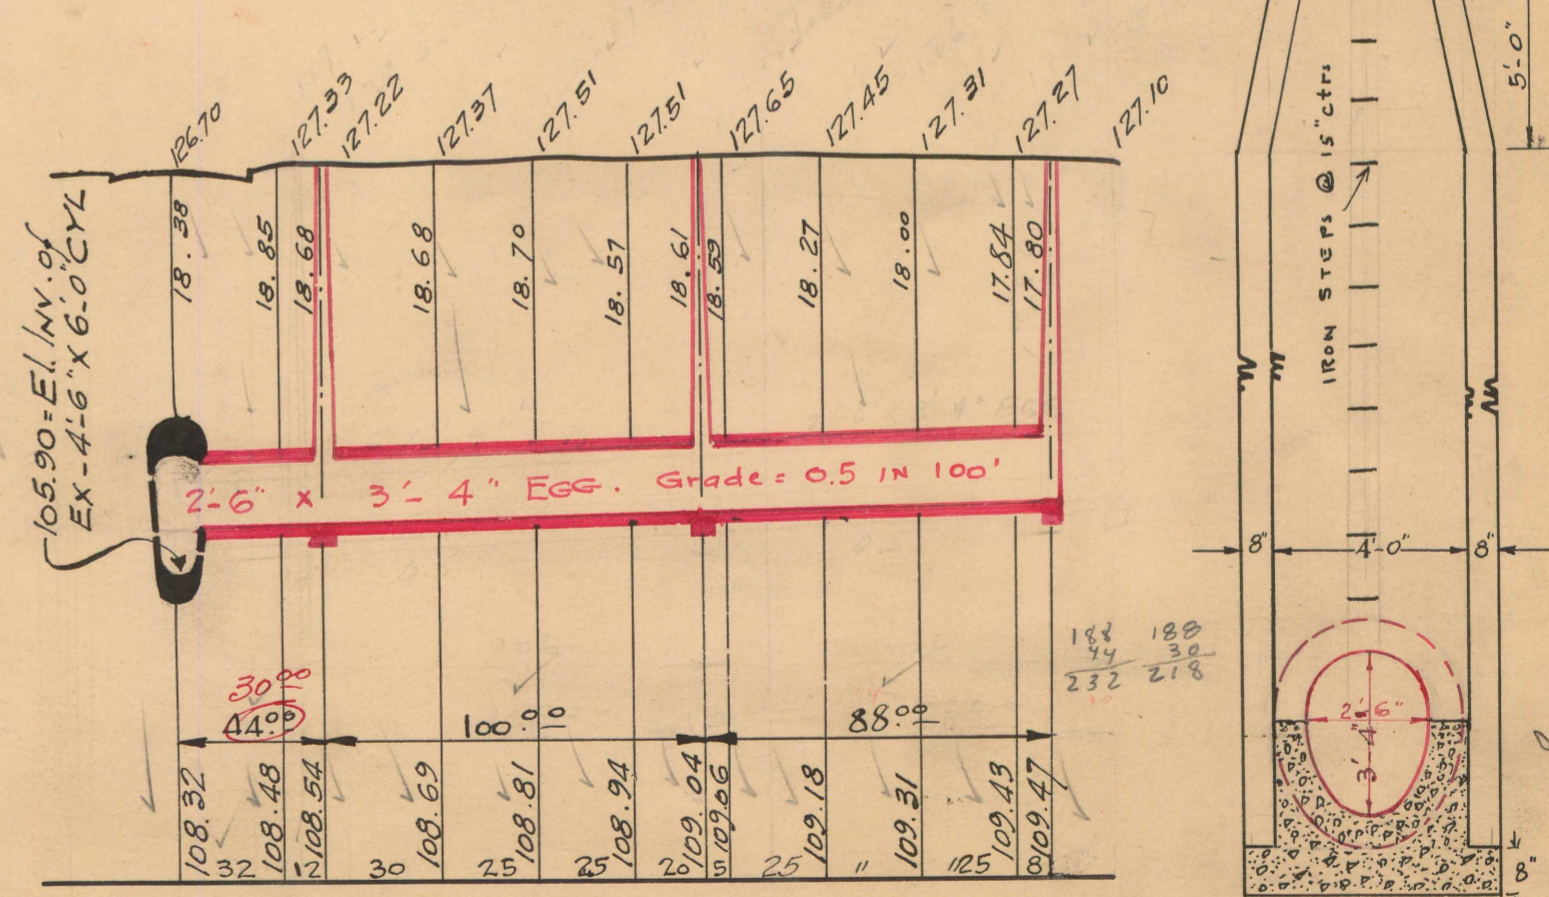 126.70 127.33 127.22 127.37 127.51 127.51 127.65 127.45 127.31 127.27 127.10
105.90 = El. INV. of
EX - 4'-6" X 6'-0" CYL
18.38 18.85 18.68 18.68 18.70 18.57 18.61 18.59 18.27 18.00 17.84 17.80
2'-6" x 3'-4" EGG. Grade = 0.5 IN 100'
30.00
44.00 100.00 88.00
188
44
232
188
30
218
108.32 108.48 108.54 108.69 108.81 108.94 109.04 109.06 109.18 109.31 109.43 109.47
32 12 30 25 25 20 5 25 " "25 8
5'-0"
IRON STEPS @ 15" ctrs
8" 4'-0" 8"
2'-6"
3'-4"
8"